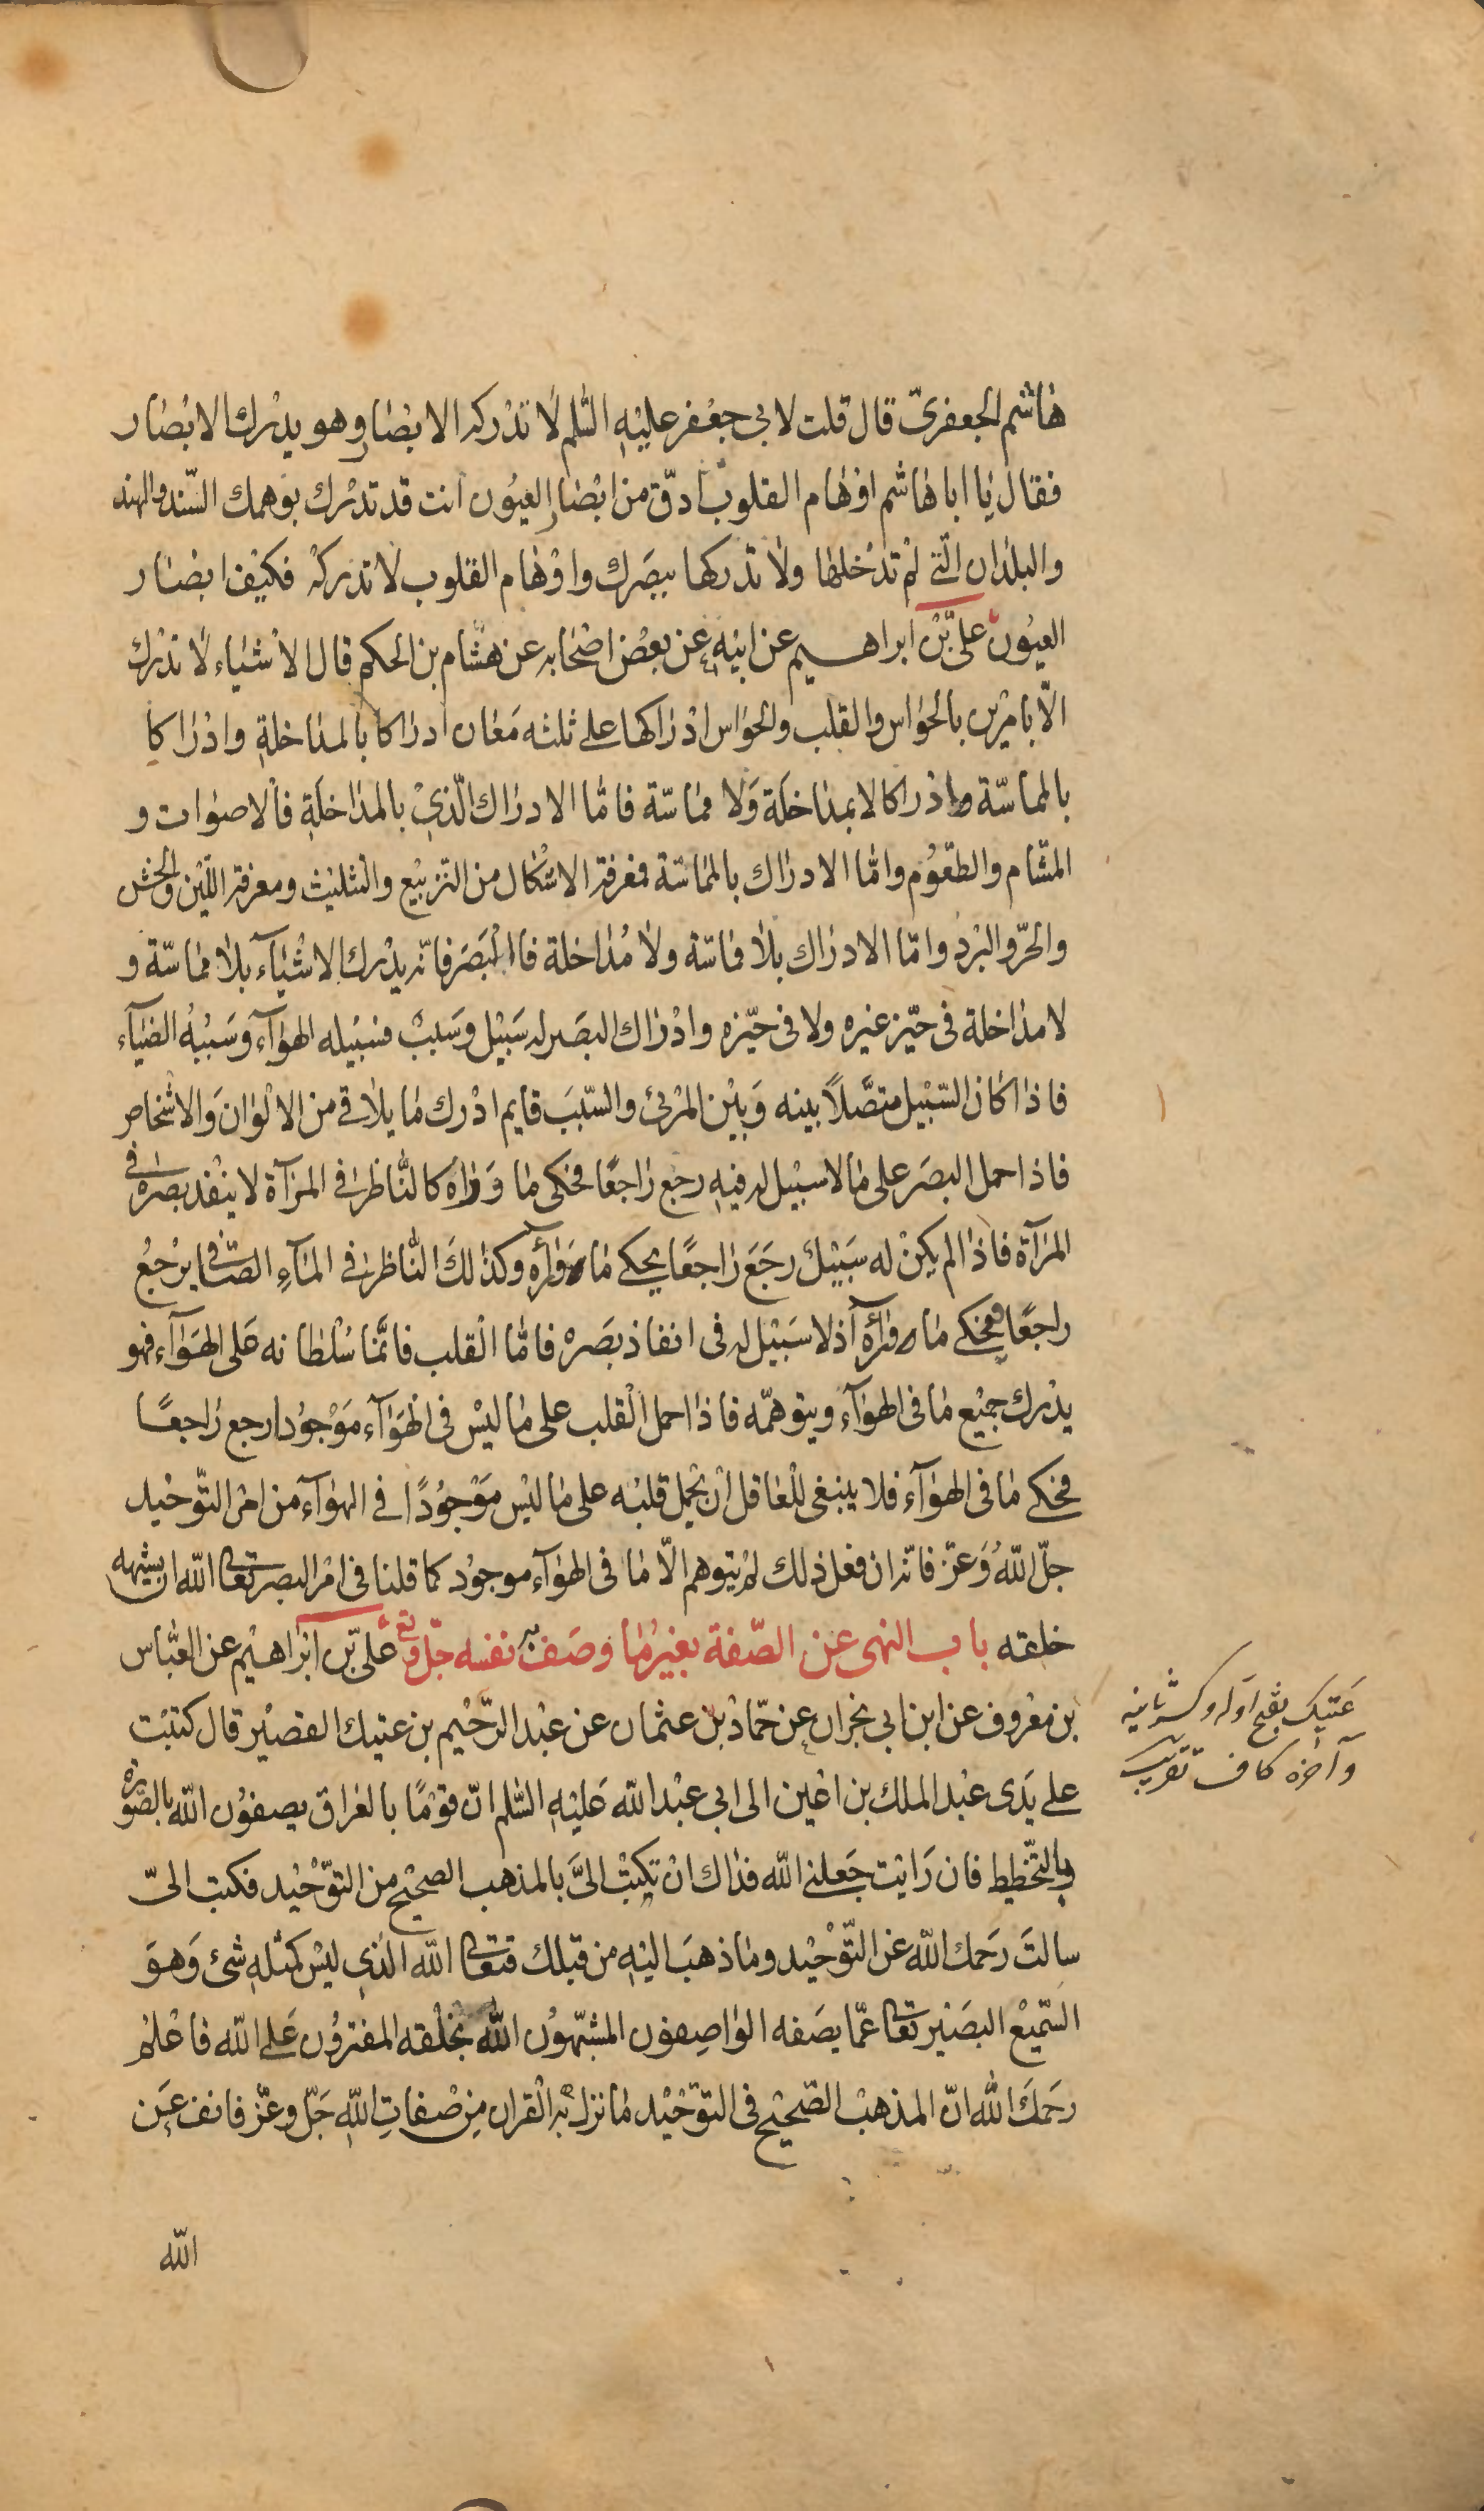 هاشم الجعفريّ قال قلت لابي جعفر عليه السّلم لا تدركه الابصار وهو يدرك الابصار
فقال يا ابا هاشم اوهام القلوب ادقّ من ابصار العيون انت قد تدرك بوهمك السّند والهند
والبلدان الّتي لم تدخلها ولا تدركها ببصرك واوهام القلوب لا تدركه فكيف ابصار
العيون علىّ بن ابراهيم عن ابيه عن بعض اصحابه عن هشام بن الحكم قال الاشياء لا تدرك
الّا بامرين بالحواس والقلب والحواس ادراكها على ثلثه معان ادراكا بالمداخلة وادراكا
بالمماسّة وادراكا لا بمداخلة ولا مماسّة فامّا الادراك الّذي بالمداخلة فالاصوات و
المشّام والطّعوم وامّا الادراك بالمماسّة فمعرفة الاشكال من التربيع والتثليث ومعرفة اللّين والخشن
والحرّ والبرد وامّا الادراك بلا مماسّة ولا مداخلة فالبصر فانّه يدرك الاشيآء بلا مماسّة و
لا مداخلة فى حيّز غيره ولا فى حيّزه وادراك البصر له سبيل وسبب فسبيله الهوآء وسببه الضيآء
فاذا كان السّبيل متصّلاً بينه وبين المرئ والسّبب قايم ادرك ما يلاقى من الالوان والاشخاص
فاذا حمل البصر على ما لا سبيل له فيه رجع راجعًا فحكى ما وراه كالنّاظر فى المرآة لا ينفذ بصره فى
المرآة فاذا لم يكن له سبيل رجع راجعًا يحكى ما ورآئه وكذلك النّاظر فى المآء الصّافى يرجع
راجعًا فيحكى ما ورائه اذ لا سبيل له فى انفاذ بصره فامّا القلب فانّما سلطانه على الهوآء فهو
يدرك جميع ما فى الهوآء ويتوهمّه فاذا حمل القلب على ما ليس فى الهوآء موجودا رجع راجعًا
فحكى ما فى الهوآء فلا ينبغى للعاقل ان يحمل قلبه على ما ليس موجودًا فى الهوآء من امر التّوحيد
جلّ اللّه وعزّ فانّه ان فعل ذلك لم يتوهم الّا ما فى الهوآء موجود كما قلنا فى امر البصر تعالى اللّه ان يشبهه
خلقه باب النهى عن الصّفة بغير ما وصف به نفسه جلّ وتع علىّ بن ابراهيم عن العبّاس
بن معروف عن ابن ابي نجران عن حمّاد بن عثمان عن عبد الرّحيم بن عتيك القصير قال كتبت
على يدى عبد الملك بن اعين الى ابي عبد اللّه عليه السّلم انّ قومًا بالعراق يصفون اللّه بالصّورة
وبالتّخطيط فان رايت جعلنى اللّه فداك ان تكتب الىّ بالمذهب الصحيح من التوّحيد فكتب الىّ
سالت رحمك اللّه عن التّوحيد وما ذهب اليه من قبلك فتعالى اللّه الّذي ليس كمثله شئ وهو
السّميع البصير تعالى عمّا يصفه الواصفون المشبّهون اللّه بخلقه المفترون على اللّه فاعلم
رحمك اللّه انّ المذهب الصّحيح فى التوّحيد ما نزل به القران من صفات اللّه جلّ وعزّ فانف عن
اللّه
عتيك بفتح اوله وكسر ثانيه
وآخره كاف تقريب